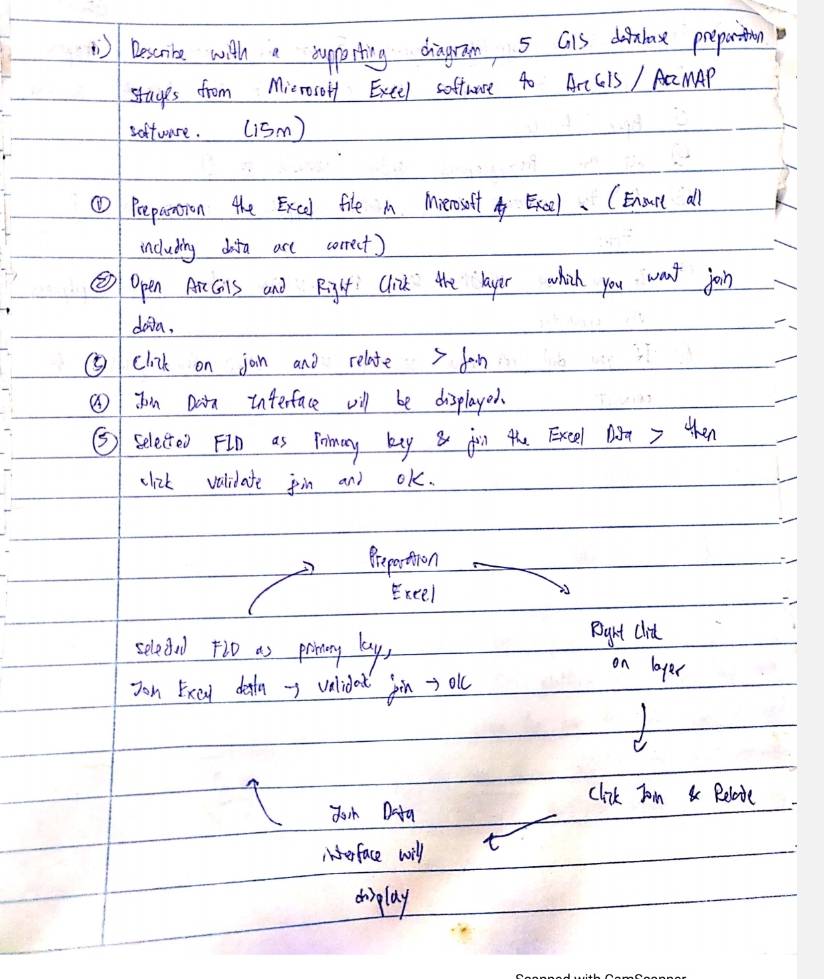 ii) Describe with a supporting diagram, 5 GIS database preparation
stages from Microsoft Excel software to ArcGIS / ArcMAP
software. (15m)
① Preparation the Excel file in Microsoft Excel. (Ensure all
including data are correct)
② Open ArcGIS and Right Click the layer which you want join
data.
③ Click on join and relate > Join
④ Join Data Interface will be displayed.
⑤ Selected FID as Primary key & join the Excel Data > then
click validate join and OK.
Preparation
Excel
Right Click
on layer
Click Join & Relate
Join Data
interface will
display
Selected FID as primary key,
Join Excel data → validate join → OK
Scanned with CamScanner